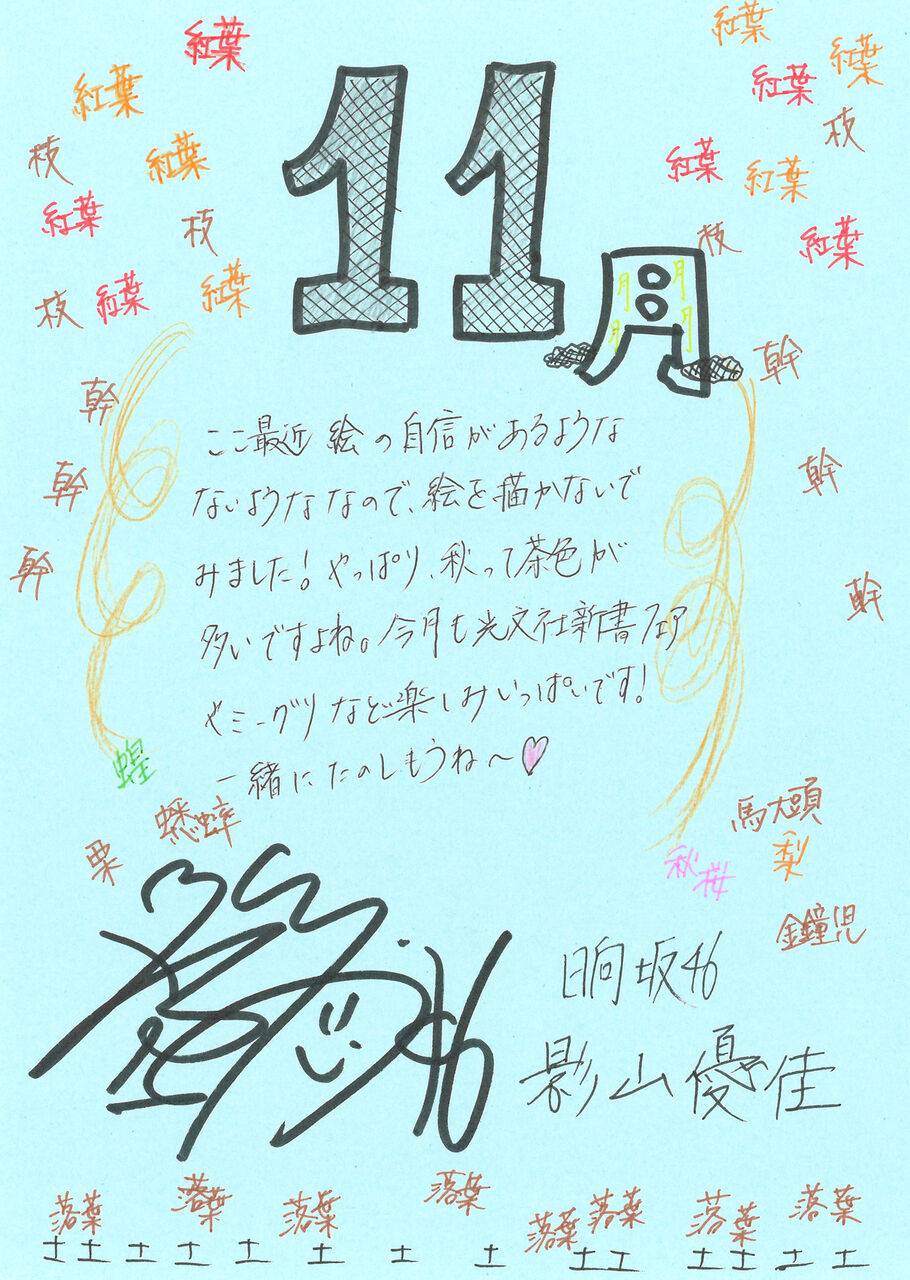 紅葉 紅葉
紅葉 紅葉 紅葉
枝 紅葉 紅葉 紅葉 枝
紅葉 枝 枝 紅葉
枝 紅葉 紅葉
11月
月 月 月 月
幹 幹
幹 幹
幹 幹
ここ最近 絵の自信があるような
ないようななので、絵を描かないで
みました!やっぱり、秋って茶色が
多いですよね。今月も光文社新書フェア
やミーグリなど楽しみいっぱいです!
一緒にたのしもうね〜♡
蝗
栗 蟋蟀
馬大頭
秋桜 梨
金鐘児
46
日向坂46
影山優佳
落葉 落葉 落葉 落葉 落葉 落葉 落葉 落葉 落葉
土 土 土 土 土 土 土 土 土 土 土 土 土 土